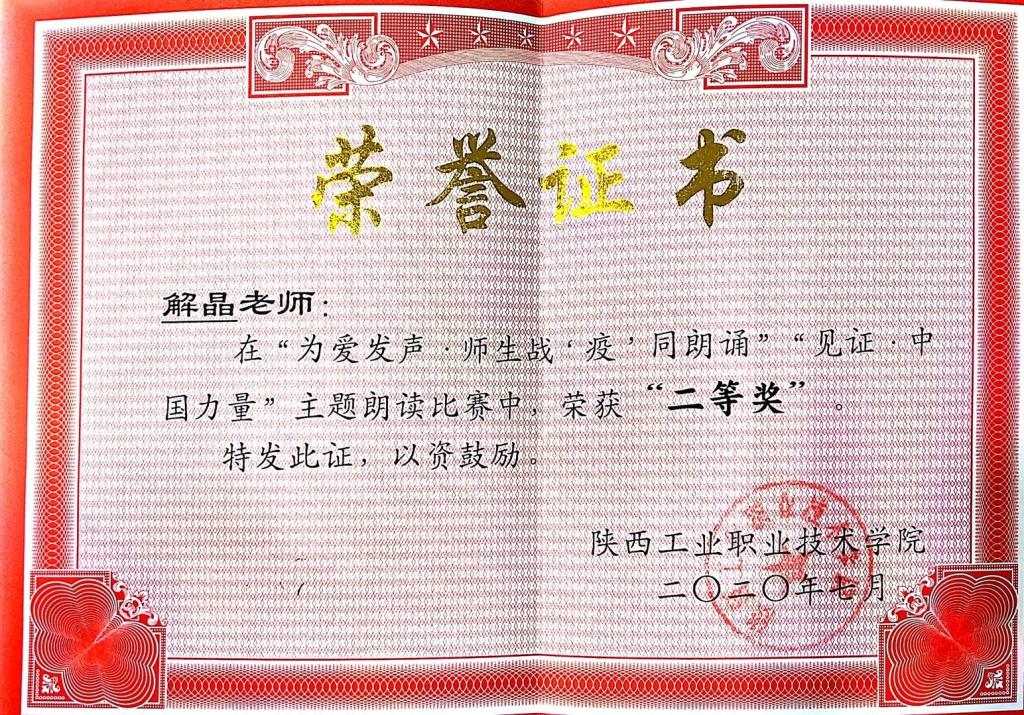 荣誉证书
解晶老师：
在“为爱发声·师生战‘疫’同朗诵”“见证·中
国力量”主题朗读比赛中，荣获“二等奖”。
特发此证，以资鼓励。
陕西工业职业技术学院
二〇二〇年七月